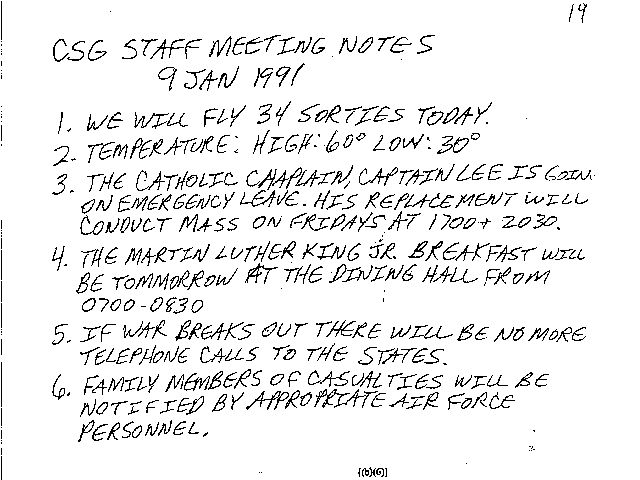 19
CSG STAFF MEETING NOTES
9 JAN 1991
1. WE WILL FLY 34 SORTIES TODAY.
2. TEMPERATURE: HIGH: 60° LOW: 30°
3. THE CATHOLIC CHAPLAIN, CAPTAIN LEE IS GOIN
ON EMERGENCY LEAVE. HIS REPLACEMENT WILL
CONDUCT MASS ON FRIDAYS AT 1700 + 2030.
4. THE MARTIN LUTHER KING JR. BREAKFAST WILL
BE TOMMORROW AT THE DINING HALL FROM
0700-0830
5. IF WAR BREAKS OUT THERE WILL BE NO MORE
TELEPHONE CALLS TO THE STATES.
6. FAMILY MEMBERS OF CASUALTIES WILL BE
NOTIFIED BY APPROPRIATE AIR FORCE
PERSONNEL.
(b)(6)